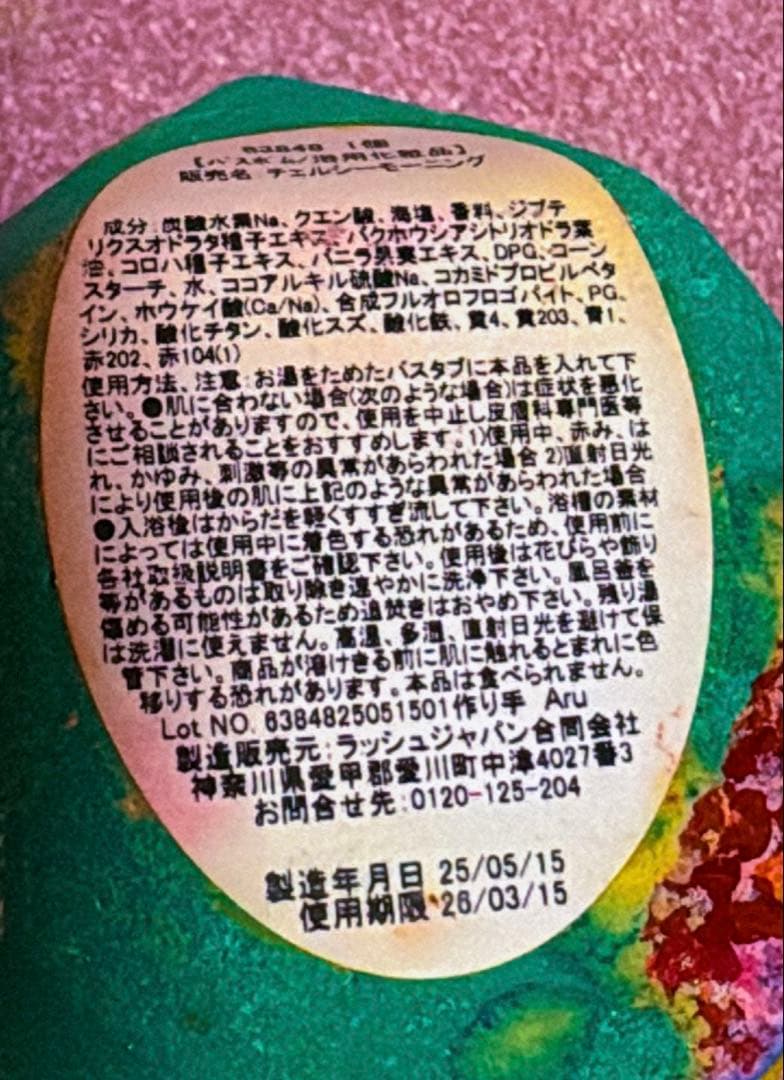 63848 1個
【バスボム/浴用化粧品】
販売名 チェルシーモーニング
成分:炭酸水素Na、クエン酸、海塩、香料、ジプテ
リクスオドラタ種子エキス、バクホウシアシトリオドラ葉
油、コロハ種子エキス、バニラ果実エキス、DPG、コーン
スターチ、水、ココアルキル硫酸Na、コカミドプロピルベタ
イン、ホウケイ酸(Ca/Na)、合成フルオロフロゴパイト、PG、
シリカ、酸化チタン、酸化スズ、酸化鉄、黄4、黄203、青1、
赤202、赤104(1)
使用方法、注意:お湯をためたバスタブに本品を入れて下
さい。●肌に合わない場合(次のような場合)は症状を悪化
させることがありますので、使用を中止し皮膚科専門医等
にご相談されることをおすすめします。1)使用中、赤み、は
れ、かゆみ、刺激等の異常があらわれた場合 2)直射日光
により使用後の肌に上記のような異常があらわれた場合
●入浴後はからだを軽くすすぎ流して下さい。浴槽の素材
によっては使用中に着色する恐れがあるため、使用前に
各社取扱説明書をご確認下さい。使用後は花びらや飾り
等があるものは取り除き速やかに洗浄下さい。風呂釜を
傷める可能性があるため追焚きはおやめ下さい。残り湯
は洗濯に使えません。高温、多湿、直射日光を避けて保
管下さい。商品が溶けきる前に肌に触れるとまれに色
移りする恐れがあります。本品は食べられません。
Lot NO. 6384825051501作り手 Aru
製造販売元:ラッシュジャパン合同会社
神奈川県愛甲郡愛川町中津4027番3
お問合せ先:0120-125-204
製造年月日 25/05/15
使用期限 26/03/15